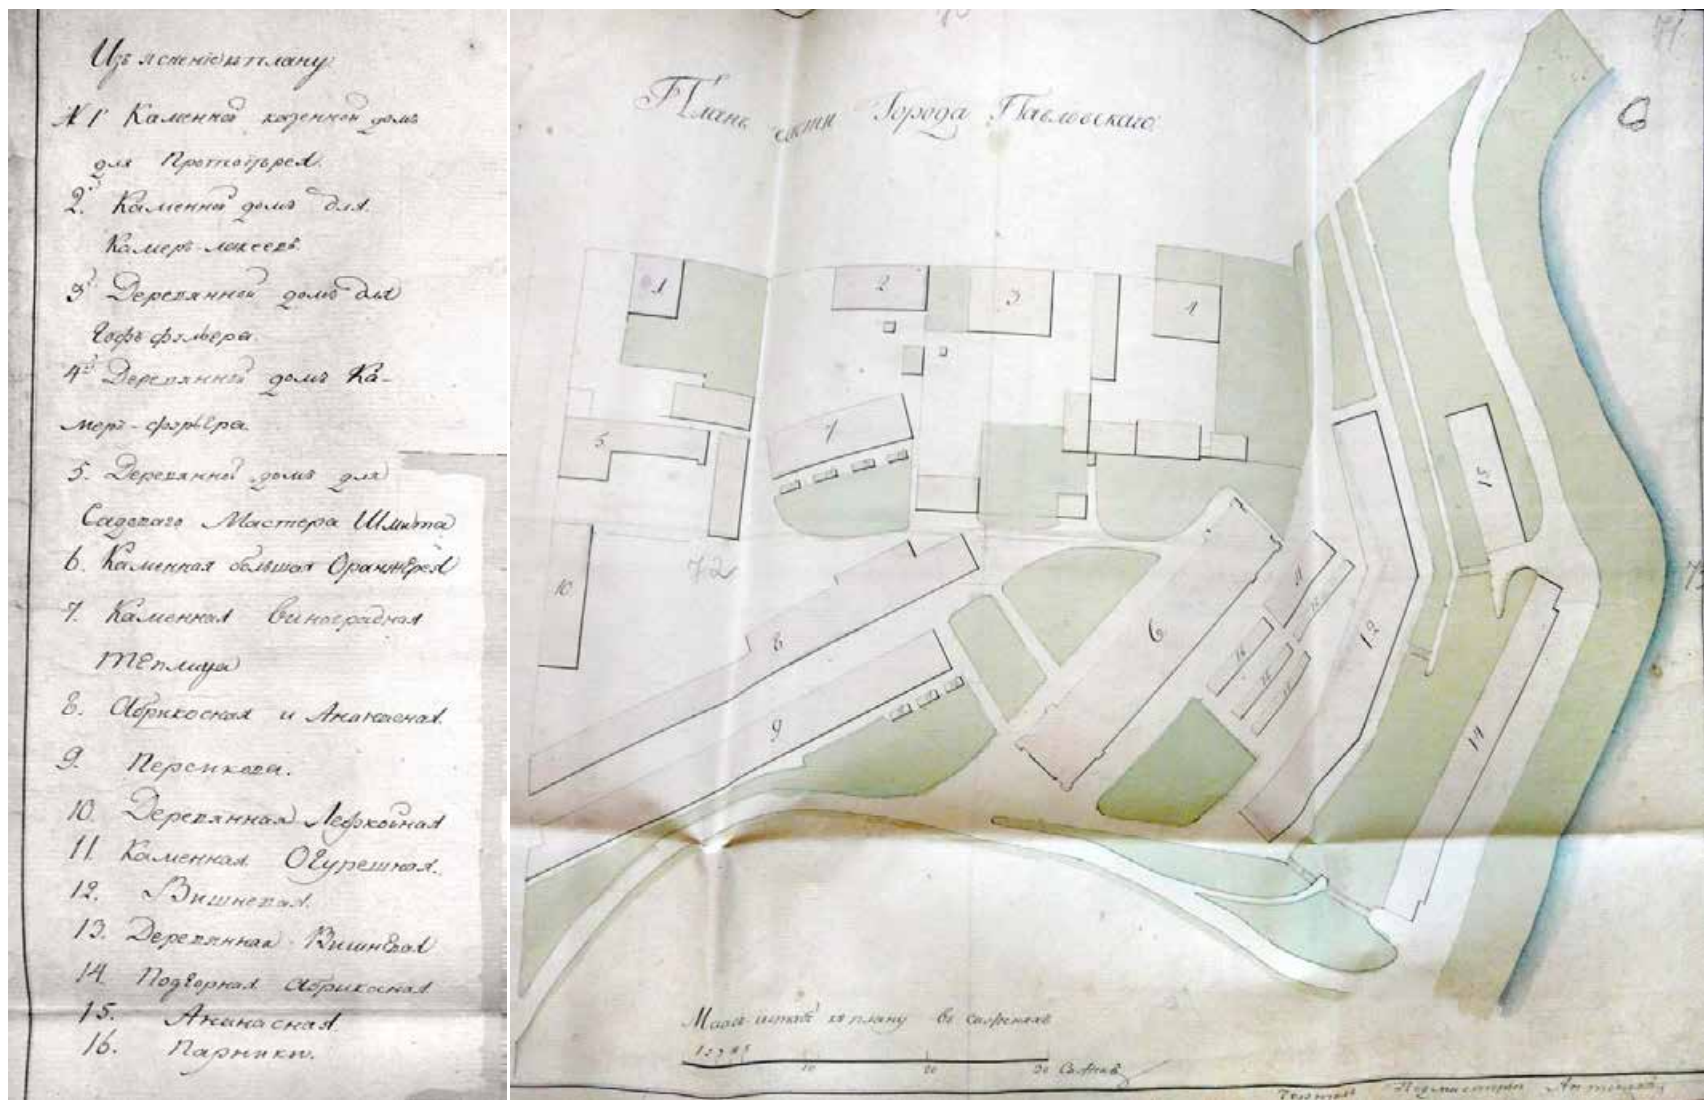 Изъяснение к плану
№ 1 Каменной казенной домъ
для Протоіерея.
2. Каменной домъ для
Камеръ-лакеевъ.
3 Деревянной домъ для
Гофъ-фурьера.
4 Деревянной домъ Ка-
меръ-фурьера.
5. Деревянной домъ для
Садоваго Мастера Шмита
6. Каменная большая Оранжерея
7. Каменная виноградная
теплица
8. Абрикосная и Ананасная.
9. Персикова.
10. Деревянная Лефкойная
11. Каменная Огурешная.
12. Вишневая.
13. Деревянная Вишневая
14. Подгорная Абрикосная.
15. Ананасная.
16. Парники.
71.
Планъ части Города Павловскаго.
1
2
3
4
5
7
15
10
72
8
6
11
16
12
16
16
16
9
14
Масштабъ къ плану въ саженяхъ
1 2 3 4 5
10
20
30 Сажень
Подмастерья